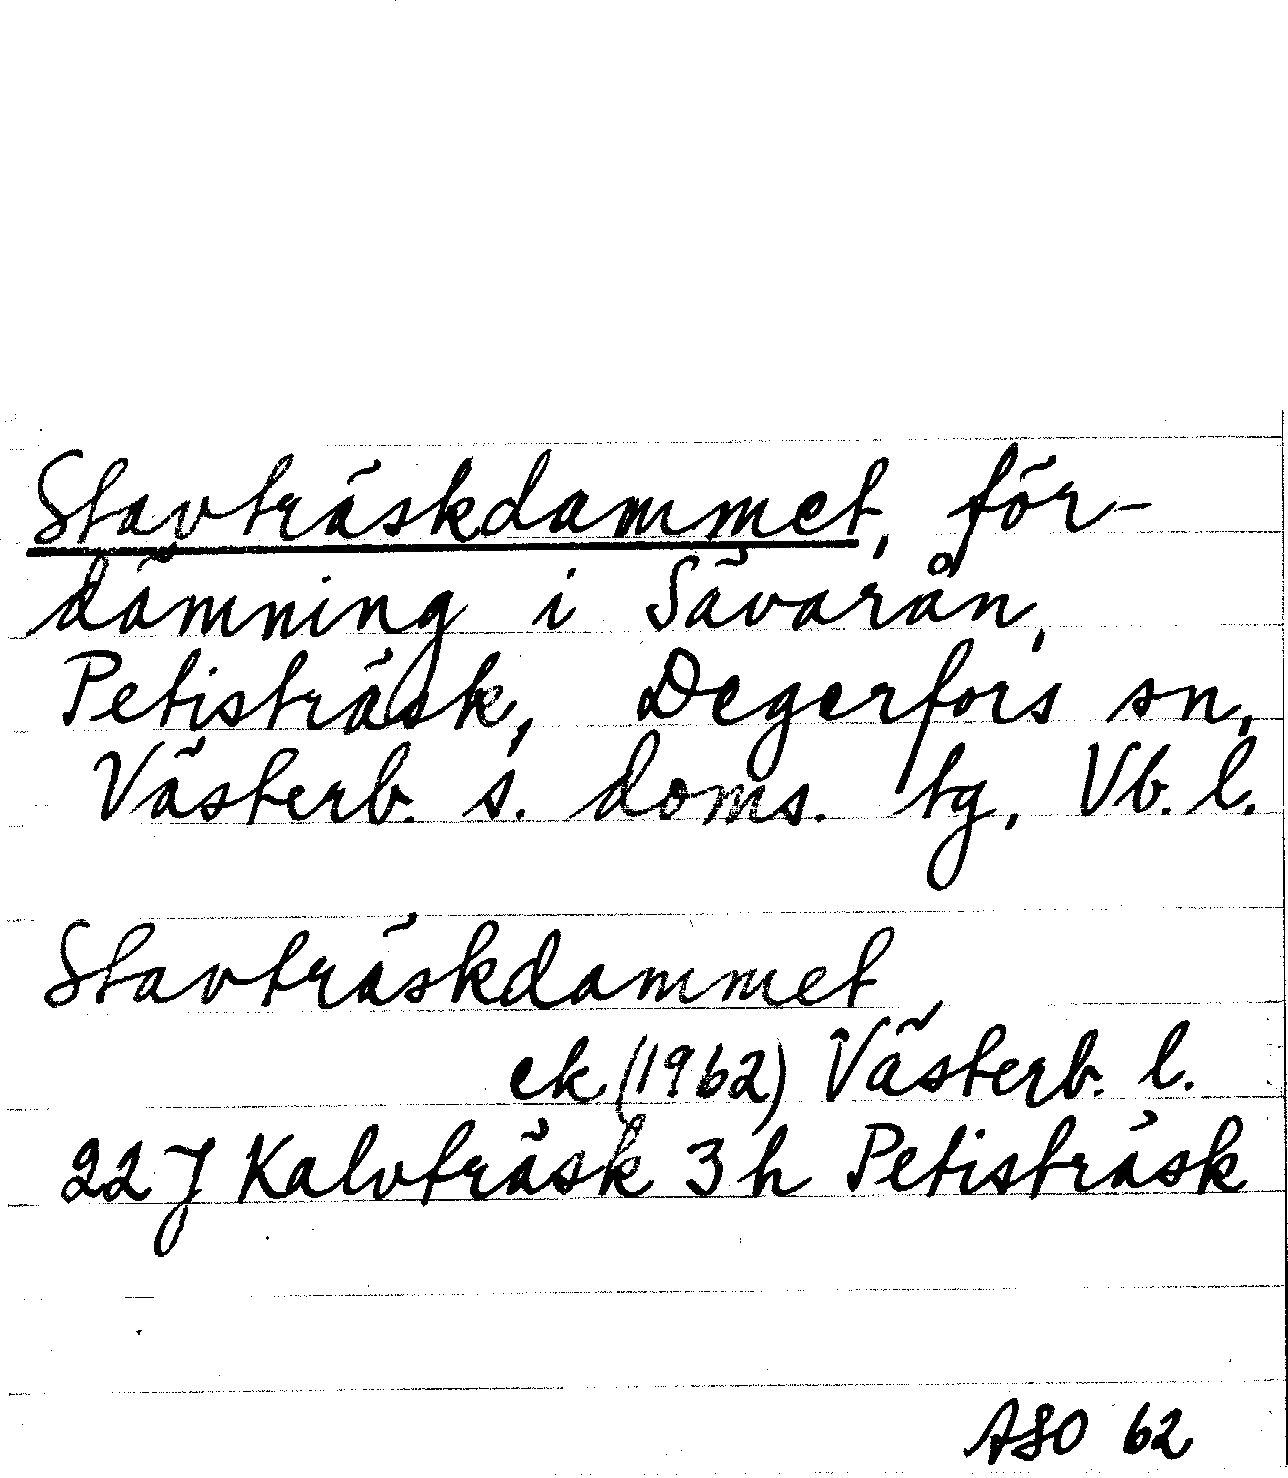 Stavträskdammet, för-
dämning i Sävarån,
Petisträsk, Degerfors sn,
Västerb. s. doms. tg, Vb. l.
Stavträskdammet
ek (1962) Västerb. l.
22 J Kalvträsk 3 h Petisträsk
ASO 62